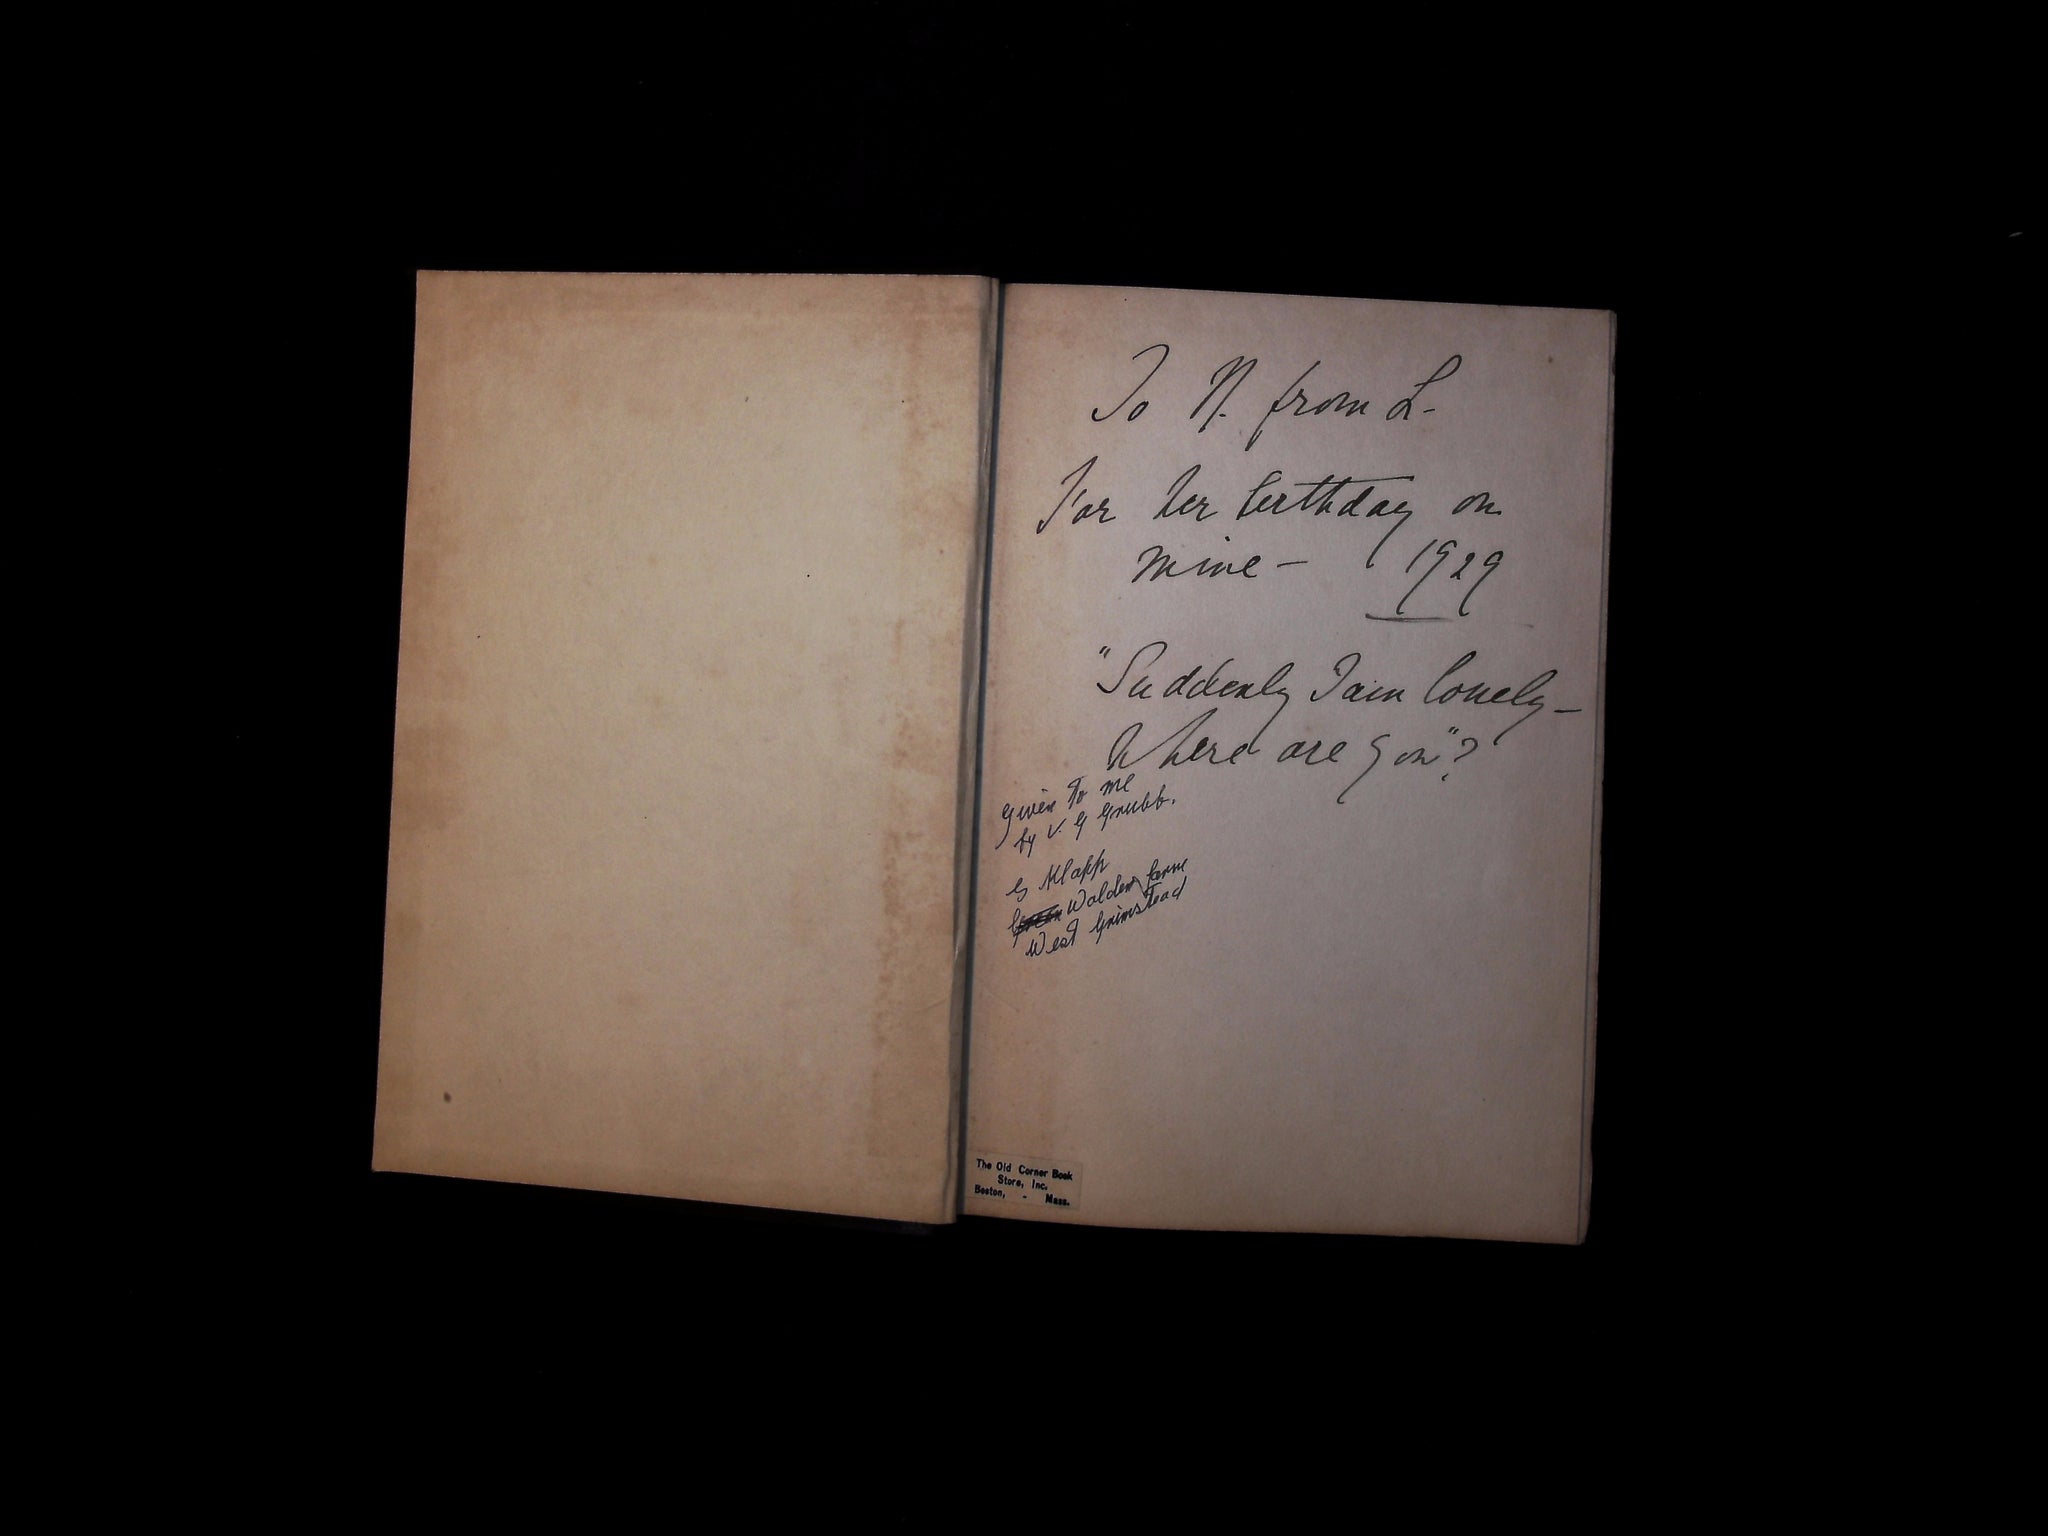 To N. from L-
For her birthday on
mine - 1929
"Suddenly I am lonely -
Where are you"?
given to me
by V. G Grubb.
G Klapp
Walden farm
West Grimstead
The Old Corner Book
Store, Inc.
Boston, - Mass.